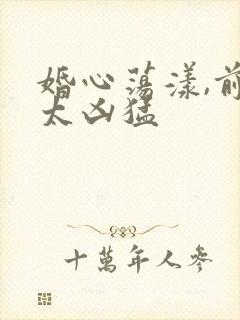 婚心荡漾,前
太凶猛
十萬年人參